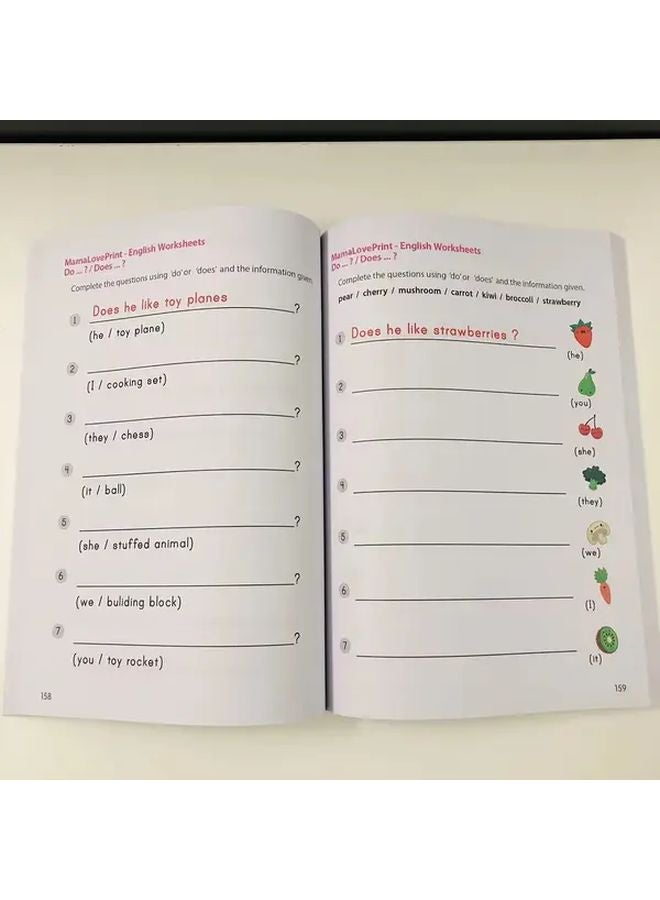 MamaLovePrint - English Worksheets
Do ... ? / Does ... ?
Complete the questions using 'do' or 'does' and the information given.
1 Does he like toy planes ?
(he / toy plane)
2 ?
(I / cooking set)
3 ?
(they / chess)
4 ?
(it / ball)
5 ?
(she / stuffed animal)
6 ?
(we / buliding block)
7 ?
(you / toy rocket)
158
MamaLovePrint - English Worksheets
Do ... ? / Does ... ?
Complete the questions using 'do' or 'does' and the information given.
pear / cherry / mushroom / carrot / kiwi / broccoli / strawberry
1 Does he like strawberries ?
(he)
2
(you)
3
(she)
4
(they)
5
(we)
6
(I)
7
(it)
159